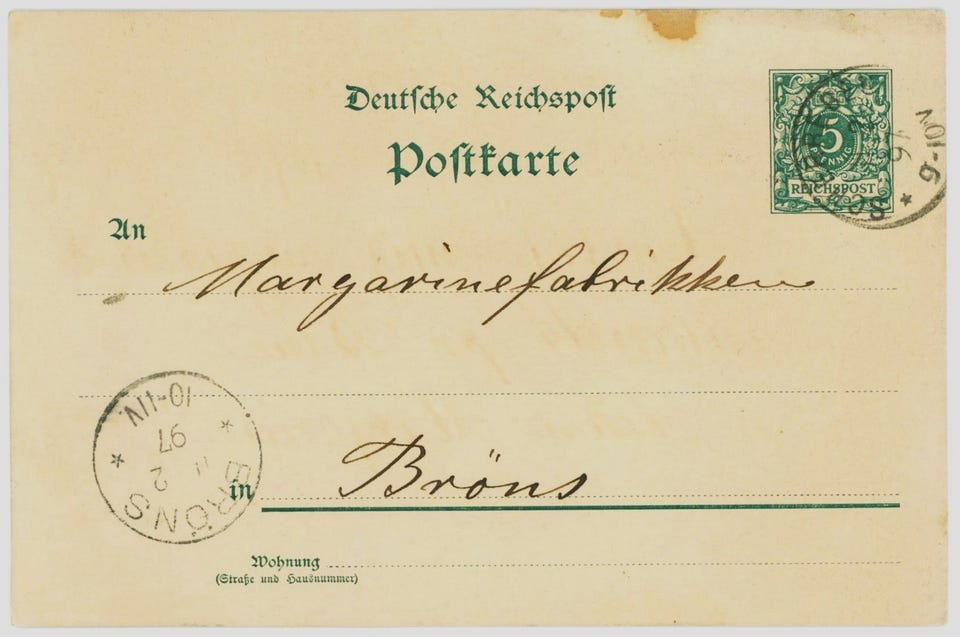 Deutsche Reichspost
Postkarte
5
PFENNIG
REICHSPOST
9-10V
An
Margarinefabrikken
BRÖNS
2
11
97
10-11V
in Bröns
Wohnung
(Straße und Hausnummer)